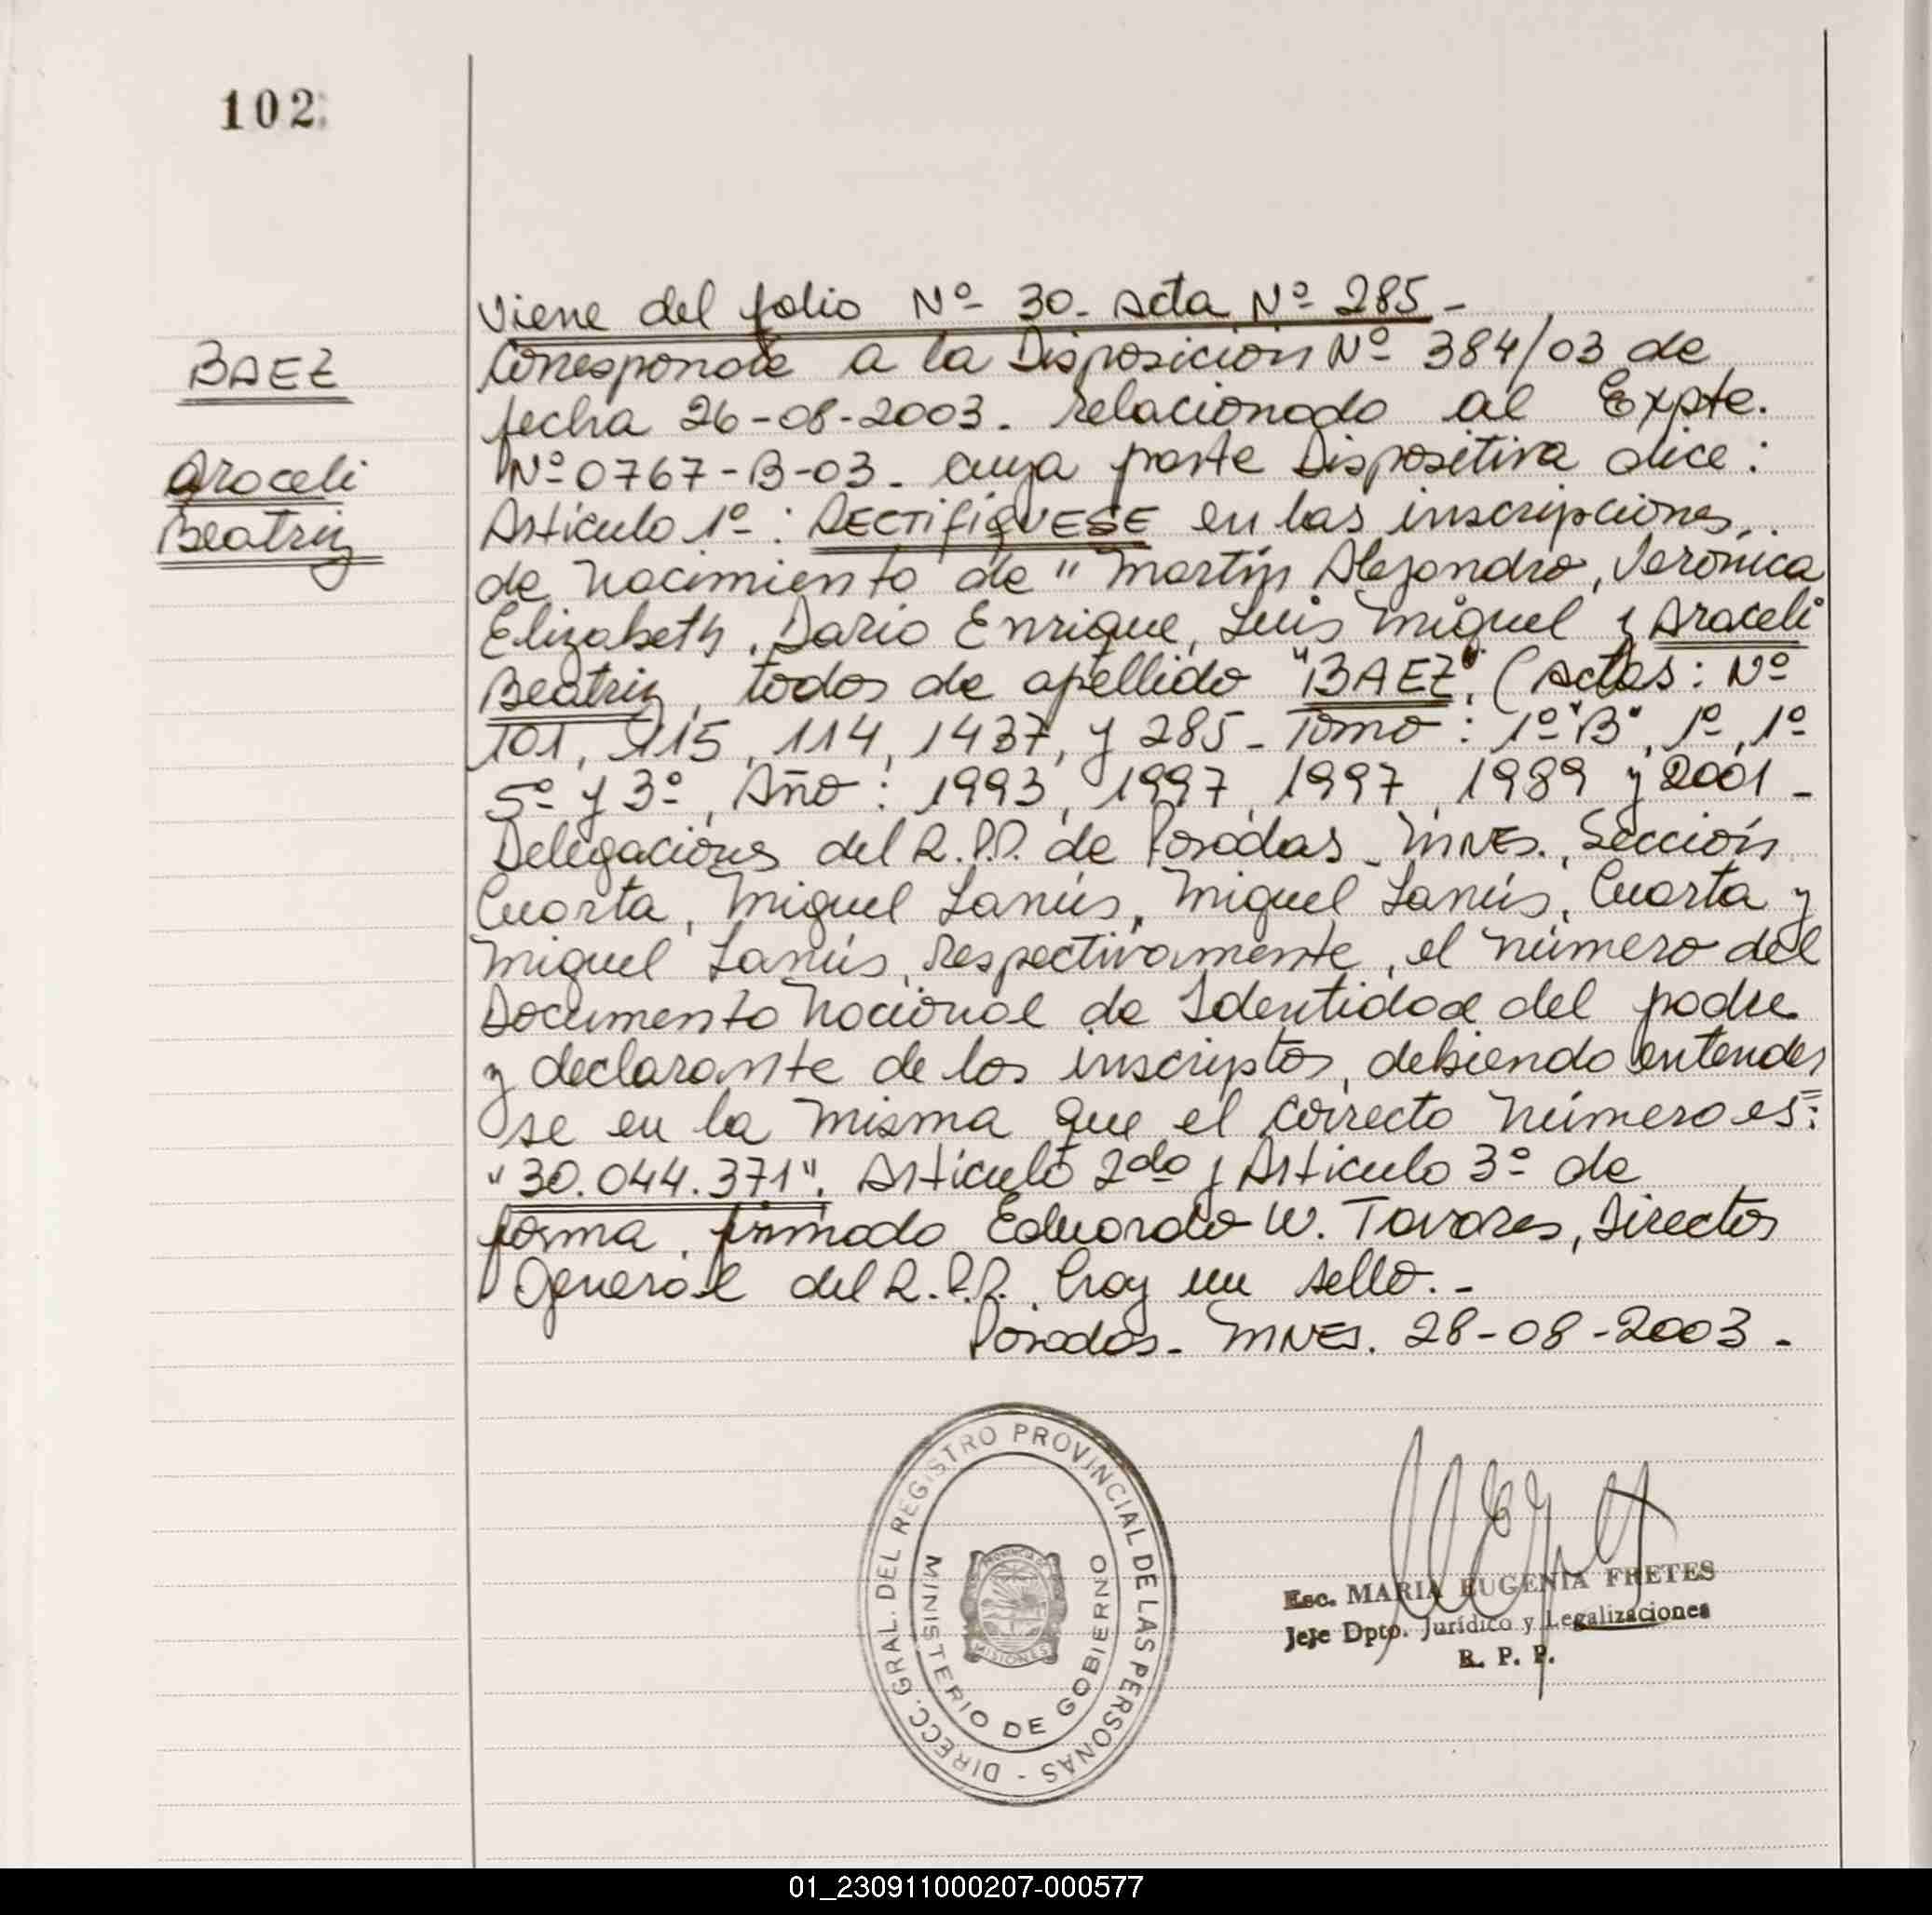 102
BAEZ
Araceli
Beatriz
Viene del folio Nº 30. Acta Nº 285 -
Corresponde a la Disposición Nº 384/03 de
fecha 26-08-2003. relacionado al Expte.
Nº 0767-B-03. cuya parte Dispositiva dice:
Artículo 1º: RECTIFIQUESE en las inscripciones
de nacimiento de "Martín Alejandro, Verónica
Elizabeth, Dario Enrique, Luis Miguel y Araceli
Beatriz, todos de apellido "BAEZ", (Actas: Nº
101, 115, 114, 1437, y 285 - Tomo: 1º "B", 1º, 1º
5º y 3º, Año: 1993, 1997, 1997, 1989 y 2001 -
Delegaciones del R.P.P. de Posadas - MNES., Sección
Cuarta, Miguel Lanús, Miguel Lanús, Cuarta y
Miguel Lanús, respectivamente, el número del
Documento Nacional de Identidad del padre
y declarante de los inscriptos, debiendo entender
se en la misma que el correcto número es:
"30.044.371". Artículo 2do y Artículo 3º de
forma. firmado Eduardo W. Tavares, Director
General del R.P.P. hay un sello. -
Posadas - MNES. 28-08-2003 -
DIRECC. GRAL. DEL REGISTRO PROVINCIAL DE LAS PERSONAS -
MINISTERIO DE GOBIERNO
PROVINCIA DE
MISIONES
Esc. MARIA EUGENIA FRETES
Jefe Dpto. Jurídico y Legalizaciones
R. P. P.
01_230911000207-000577